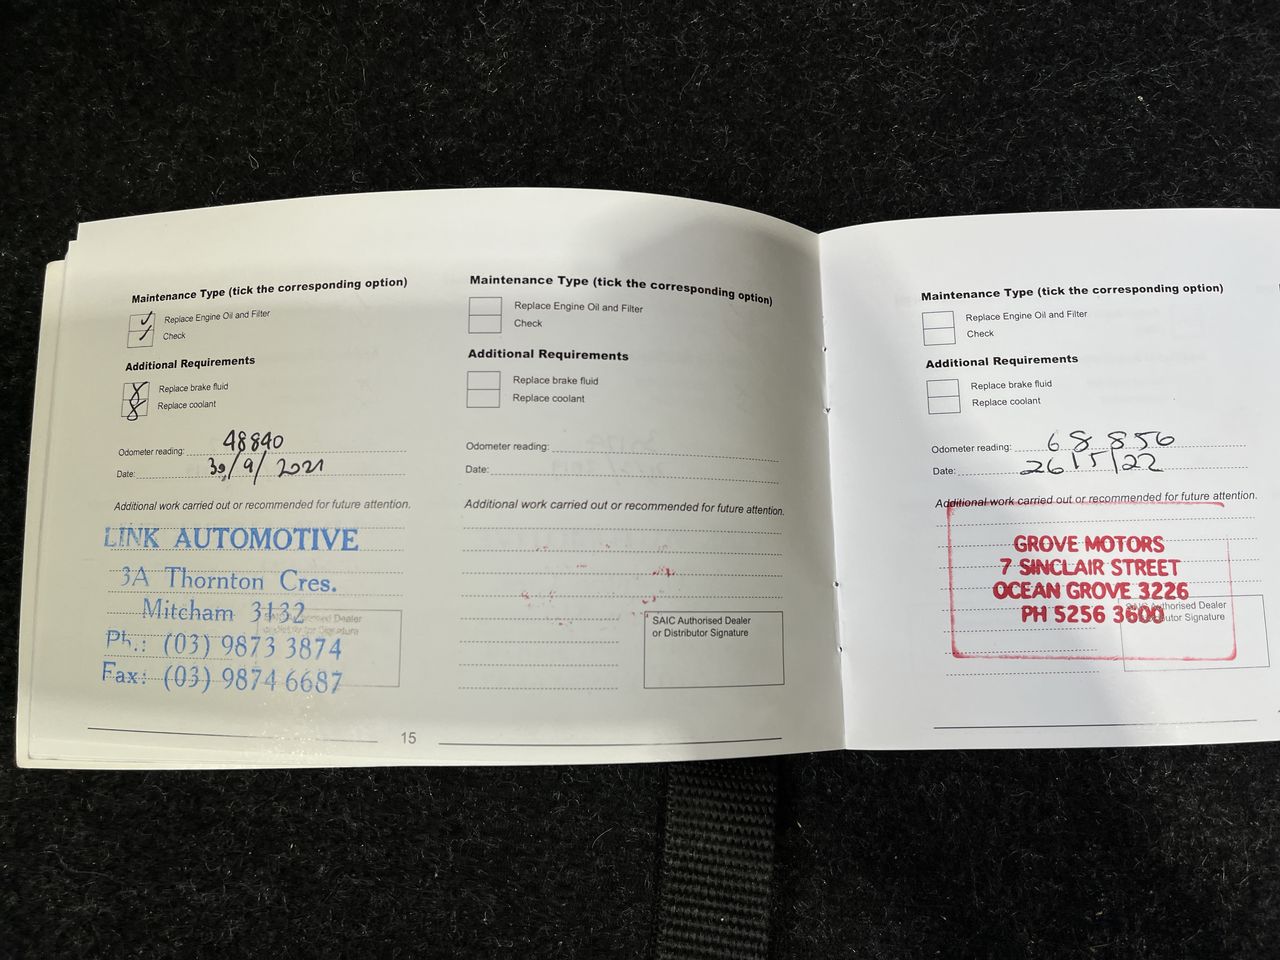 Maintenance Type (tick the corresponding option)
Replace Engine Oil and Filter
Check
Additional Requirements
Replace brake fluid
Replace coolant
Odometer reading: 48840
Date: 30/9/2021
Additional work carried out or recommended for future attention.
LINK AUTOMOTIVE
3A Thornton Cres.
Mitcham 3132
Ph.: (03) 9873 3874
Fax: (03) 9874 6687
15
Maintenance Type (tick the corresponding option)
Replace Engine Oil and Filter
Check
Additional Requirements
Replace brake fluid
Replace coolant
Odometer reading:
Date:
Additional work carried out or recommended for future attention.
SAIC Authorised Dealer
or Distributor Signature
Maintenance Type (tick the corresponding option)
Replace Engine Oil and Filter
Check
Additional Requirements
Replace brake fluid
Replace coolant
Odometer reading: 68 856
Date: 26/5/22
Additional work carried out or recommended for future attention.
GROVE MOTORS
7 SINCLAIR STREET
OCEAN GROVE 3226
PH 5256 3600
Authorised Dealer
Signature